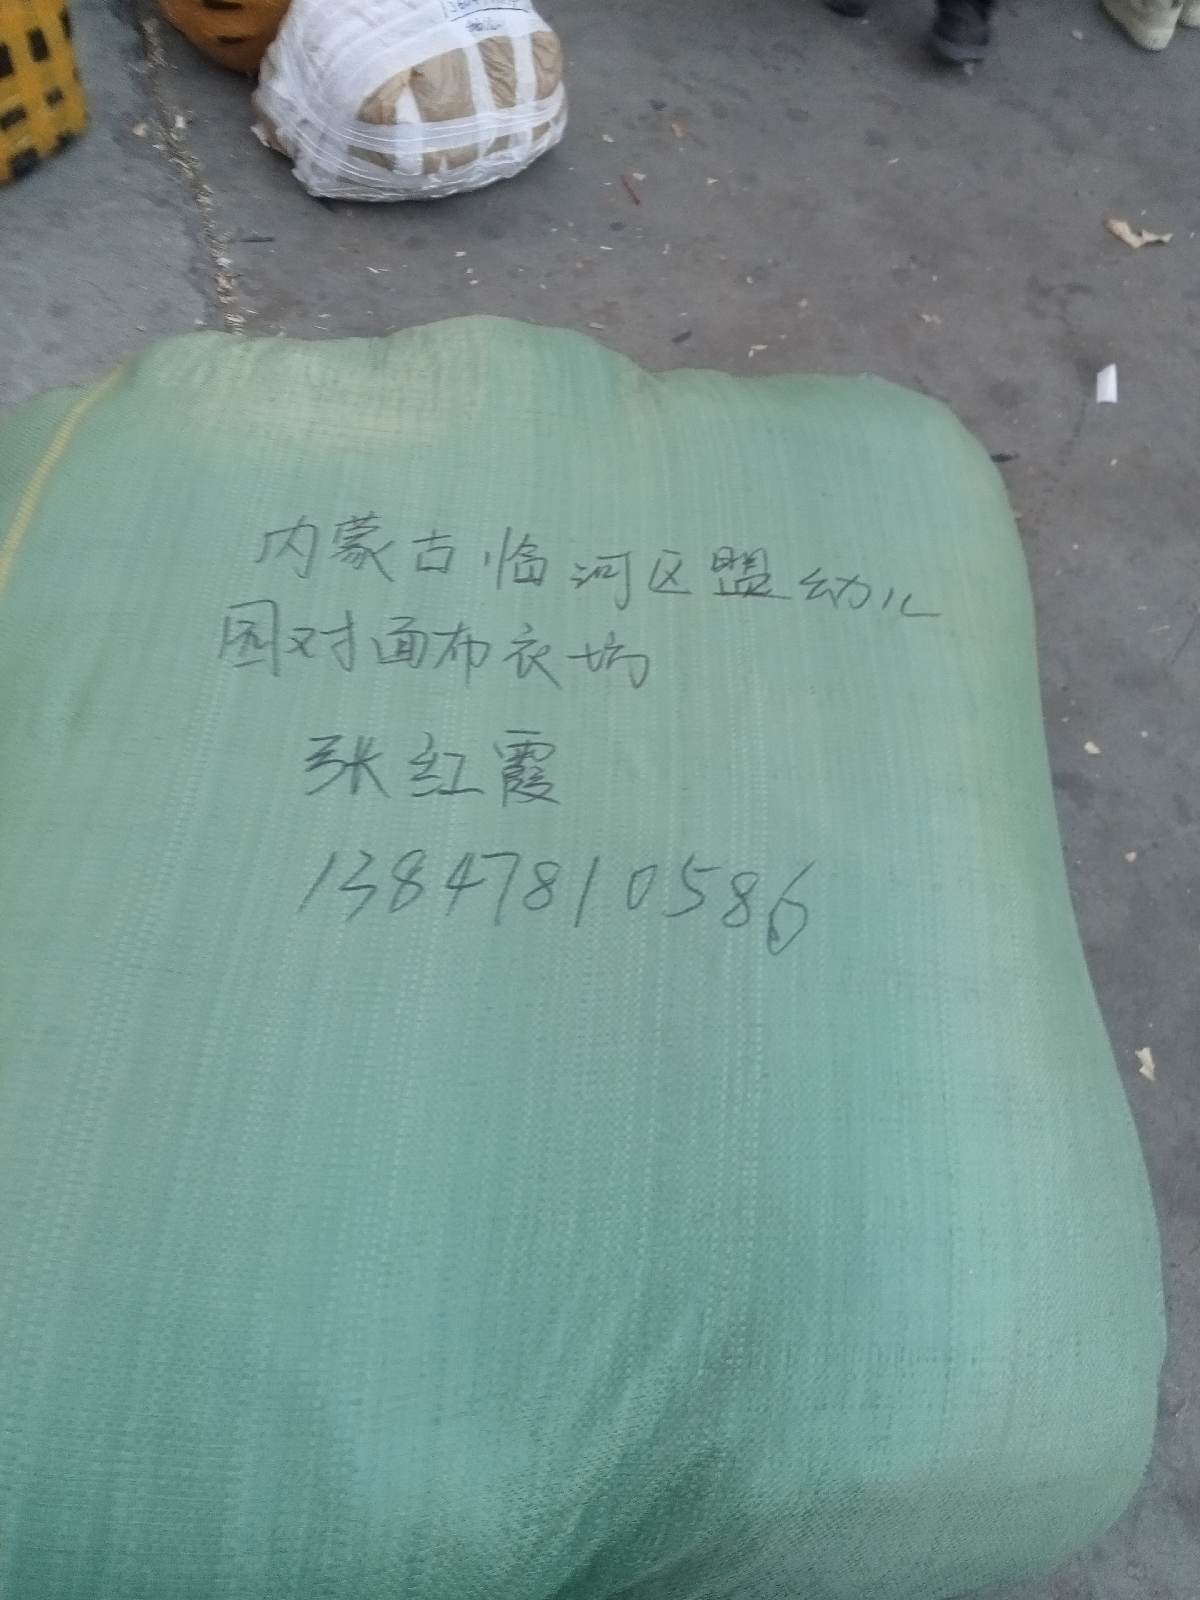 内蒙古临河区盟幼儿
园对面布衣坊
张红霞
13847810586